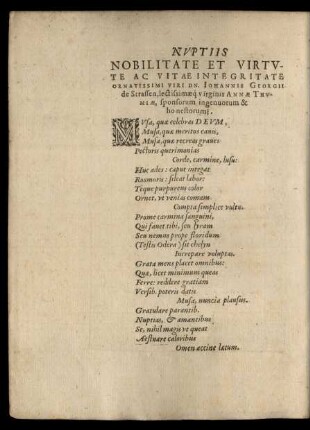 NVPTIIS
NOBILITATE ET VIRTV-
TE AC VITAE INTEGRITATE
ORNATISSIMI VIRI DN. IOHANNIS GEORGII
de Strassen, lectissimæq́ virginis ANNÆ
MIÆ, sponsorum ingenuorum &
honestorum.
MVsa, quæ celebras DEVM,
Musa, quæ meritos canis,
Musa, quæ recreas graves
Pectoris querimonias
Corde, carmine, lusu:
Huc ades: caput integat
Rosmaris: sileat labor:
Teque purpureus color
Ornet, ut venias comam
Compta simplice vultu.
Prome carmina sanguini,
Qui favet tibi, seu lyram
Seu nomen prope floridum
(Testis Odera) sit chelyn
Increpare voluptas.
Grata mens placet omnibus:
Qua, licet minimum queas
Ferre: reddere gratiam
Versib. poteris datis
Musa, nuncia plausus.
Gratulare parentib.
Nuptias, & amantibus
Se, nihil magis ve queat
Aestuare caloribus
Omen accine latum.